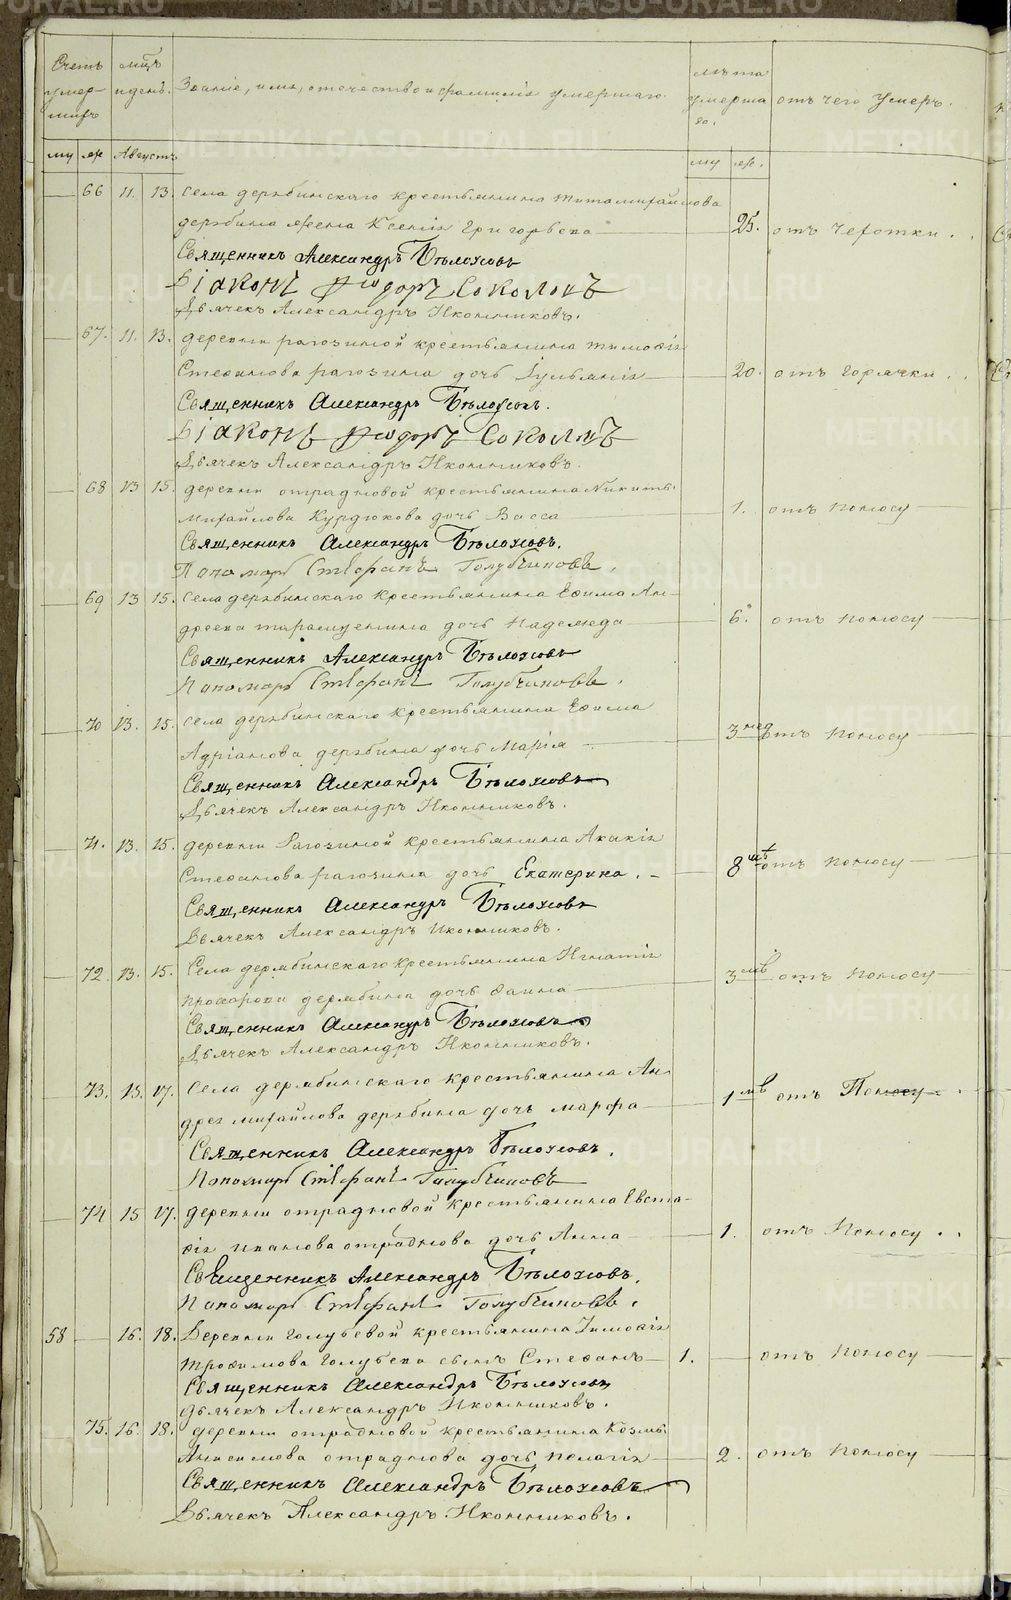 Счетъ умершихъ
мѣцъ и день.
Званіе, имя, отечество и фамилія умершаго.
лѣта умершаго.
отъ чего умеръ.
му же Августъ му же.
66 11. 13. Села дерябинскаго крестьянина Тита михайлова
дерябина жена Ксенія Григорьева 25. отъ чехотки.
Священникъ Александръ Бѣлозоровъ
Діаконъ Ѳеодоръ Соколовъ
Дьячекъ Александръ Иконниковъ.
67. 11. 13. деревни рагозиной крестьянина тимоѳія
Стефанова рагозина дочь Іульянія 20. отъ горячки.
Священникъ Александръ Бѣлозоровъ.
Діаконъ Ѳеодоръ Соколовъ
Дьячекъ Александръ Иконниковъ.
68 13 15. деревни отрадновой крестьянина Никиты
михайлова Курдюкова дочь Васса 1. отъ поносу
Священникъ Александръ Бѣлозоровъ.
Пономарь Стефанъ Голубчиковъ.
69 13 15. Села дерябинскаго крестьянина Ефима Ан-
дреева дочь Надежда 6. отъ поносу
Священникъ Александръ Бѣлозоровъ
Пономарь Стефанъ Голубчиковъ.
70 13. 15. Села дерябинскаго крестьянина Ефима
Адріанова дерябина дочь Марія 3 нед отъ поносу
Священникъ Александръ Бѣлозоровъ
Дьячекъ Александръ Иконниковъ.
71. 13. 15. деревни Рагозиной крестьянина Акакія
Стефанова рагозина дочь Екатерина. 8 отъ поносу
Священникъ Александръ Бѣлозоровъ
Дьячекъ Александръ Иконниковъ.
72 13. 15. Села дерябинскаго крестьянина Игнатія
прохорова дерябина дочь Фаина 3 отъ поносу
Священникъ Александръ Бѣлозоровъ
Дьячекъ Александръ Иконниковъ.
73. 15. 17. Села дерябинскаго крестьянина Ан-
дрея михайлова дерябина дочь марфа 1 отъ Поносу.
Священникъ Александръ Бѣлозоровъ.
Пономарь Стефанъ Голубчиковъ
74 15 17. деревни отрадновой крестьянина Евста-
фія иванова отраднова дочь Анна 1. отъ Поносу.
Священникъ Александръ Бѣлозоровъ.
Пономарь Стефанъ Голубчиковъ.
58 16. 18. Деревни Голубевой крестьянина Тимоѳія
трофимова Голубева сынъ Стефанъ 1. отъ поносу
Священникъ Александръ Бѣлозоровъ
Дьячекъ Александръ Иконниковъ.
75. 16. 18. деревни отрадновой крестьянина Козмы
Анисимова отраднова дочь пелагія 2. отъ поносу
Священникъ Александръ Бѣлозоровъ
Дьячекъ Александръ Иконниковъ.